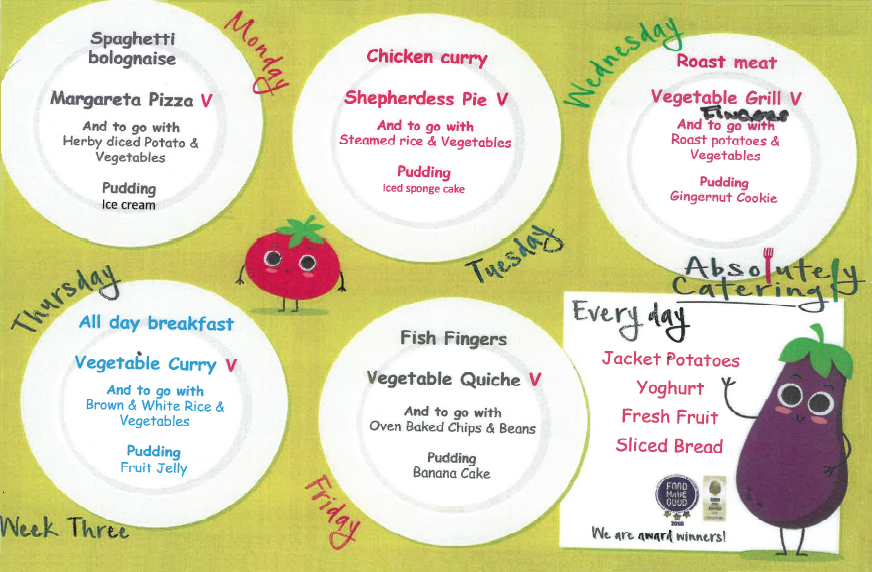 Monday
Spaghetti
bolognaise
Margareta Pizza V
And to go with
Herby diced Potato &
Vegetables
Pudding
Ice cream
Tuesday
Chicken curry
Shepherdess Pie V
And to go with
Steamed rice & Vegetables
Pudding
Iced sponge cake
Wednesday
Roast meat
Vegetable Grill V
FINGERS
And to go with
Roast potatoes &
Vegetables
Pudding
Gingernut Cookie
Thursday
All day breakfast
Vegetable Curry V
And to go with
Brown & White Rice &
Vegetables
Pudding
Fruit Jelly
Friday
Fish Fingers
Vegetable Quiche V
And to go with
Oven Baked Chips & Beans
Pudding
Banana Cake
Absolutely
Catering
Every day
Jacket Potatoes
Yoghurt
Fresh Fruit
Sliced Bread
FOOD
MADE
GOOD
We are award winners!
Week Three